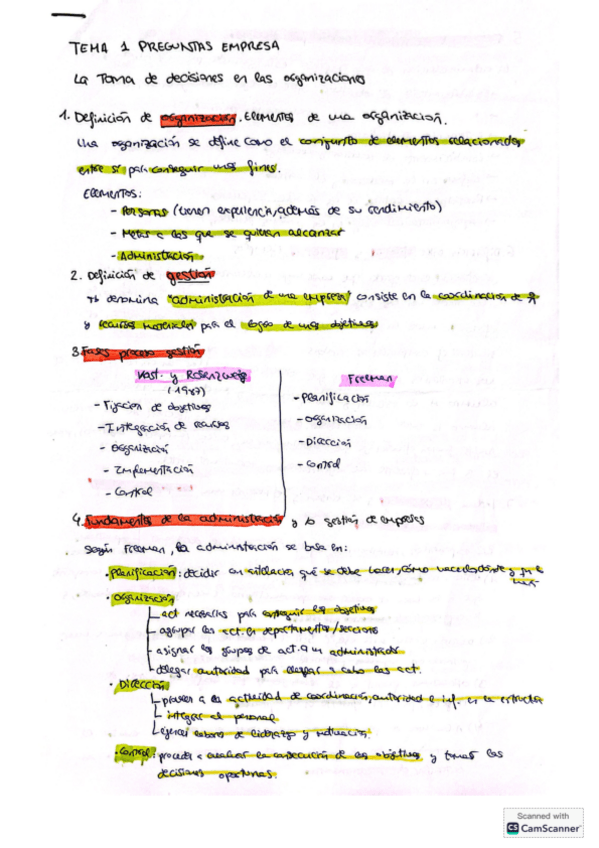 TEMA 1 PREGUNTAS EMPRESA
La Toma de decisiones en las organizaciones
1. Definición de organización. Elementos de una organización.
Una organización se define como el conjunto de elementos relacionados
entre sí para conseguir unos fines.
ELEMENTOS:
- Personas (tienen experiencia, además de su rendimiento)
- Metas a las que se quieran alcanzar
- Administración.
2. Definición de gestión
denomina "administración de una empresa" consiste en la coordinación de
y recursos materiales para el logro de unos objetivos
3. Fases proceso gestión
Kast. y Rosenzweig
(1987)
- Fijación de objetivos
- Integración de recursos
- Organización
- Implementación
- Control
Freeman
- Planificación
- Organización
- Dirección
- Control
4. Fundamentos de la administración y la gestión de empresas
Según Freeman, la administración se basa en:
· Planificación: decidir con antelación qué se debe hacer, cómo hacerlo dónde y
· Organización
act necesarias para conseguir los objetivos
agrupar las act. en departamentos/secciones
asignar los grupos de act. a un administrador
delegar autoridad para llevar a cabo las act.
· Dirección
proveer a la actividad de coordinación, autoridad e inf. en la estructura
integrar al personal
ejercer labores de liderazgo y motivación.
· Control: proceder a evaluar la consecución de los objetivos y tomar las
decisiones oportunas.
Scanned with
CS CamScanner